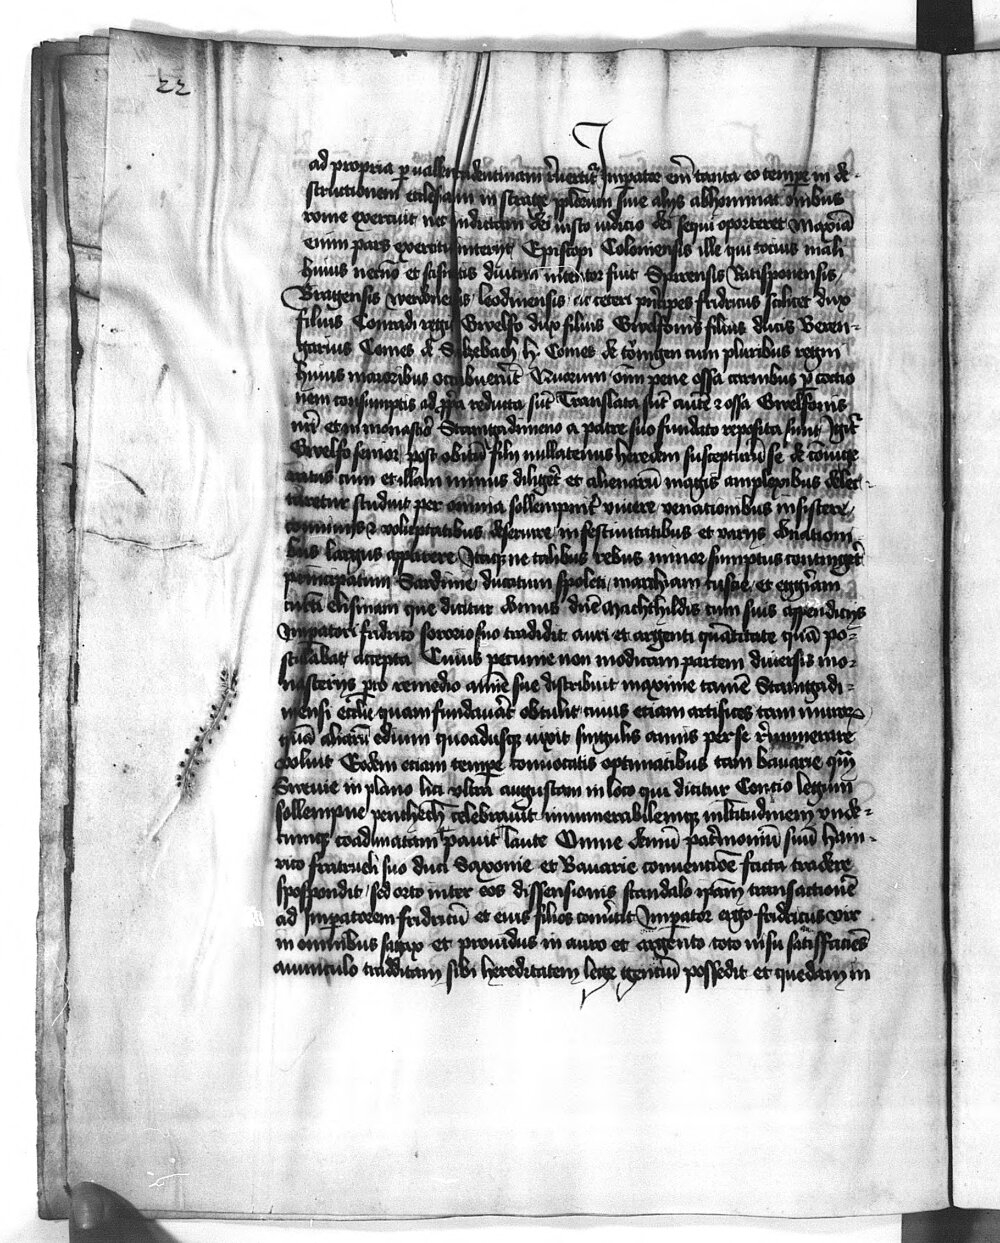 22
ad propria p vallem tridentinam revertit Impator eni tanta eo tempe in de-
structionem ecclesiarum in strage plebium sive aliis abhominat omibus
rome exercuit nec indictam dei iusto iudicio dei sequi oporteret Maxia
enim pars exercitus interiit Episcopi Coloniensis ille qui totius mali
huius et scismatis diutini inventor fuit Spirensis Ratisponensis
Bragensis verdonensis leodinensis ac ceteri principes fridricus scilicet dux
filius Conradi regis Gwelfo dux filius Gwelfonis filius ducis Beren-
garius Comes de Sulzebach h. Comes de tuingen cum pluribus regni
huius maioribus occubuerunt Quorum omni pene ossa carnibus p coctio
nem consumptis ad propria reducta sunt Translata sunt aute et ossa Gwelfonis
nri et in monastio Staingadimeno a patre suo fundato reposita sunt Igit
Gwelfo senior post obitum filii nullatenus heredem suscepturum se de coniuge
ratus cum et illam minus diliget et alienarum magis amplexibus delec-
taretur studuit per omnia sollempnit vivere venationibus insistere
conviviis et voluptatibus deservire in festivitatibus et variis donationi
bus largus apparere Itaque ne talibus rebus minor sumptus continget
principatum Sardinie ducatum spoleti marchiam tuscie et eggiam
curti elisinam que dicitur domus dne Machthildis cum suis appendiciis
Impatori fridrico sororio suo tradidit auri et argenti quantitate quam po-
stulabat accepta Cuius pecunie non modicam partem diversis mo-
nasteriis pro remedio anime sue distribuit maxime tamen Staingadi-
mensi ecclie quam fundavat obtulit cuius etiam artifices tam murorum
quam aliarum edium quoadusque vixit singulis annis per se remunerare
voluit Eodem etiam tempe convocatis optimatibus tam bavarie quam
Swevie in plano lici ultra augustam in loco qui dicitur Concio legum
sollempne penthecosten celebravit innumerabilemque multitudinem unde-
cumque coadunatam pavit laute Omne demum patrimonium suum Hain-
rico fratrueli suo duci Saxonie et Bavarie conventione facta tradere
spospondit sed orto inter eos dissensionis scandalo ipsam transactionem
ad Impatorem fridricum et eius filios convertit Impator ergo fridricus vir
in omnibus sagax et providus in auro et argento toto nisu satisfaciens
avunculo traditam sibi hereditatem lege gentium possedit et quedam in